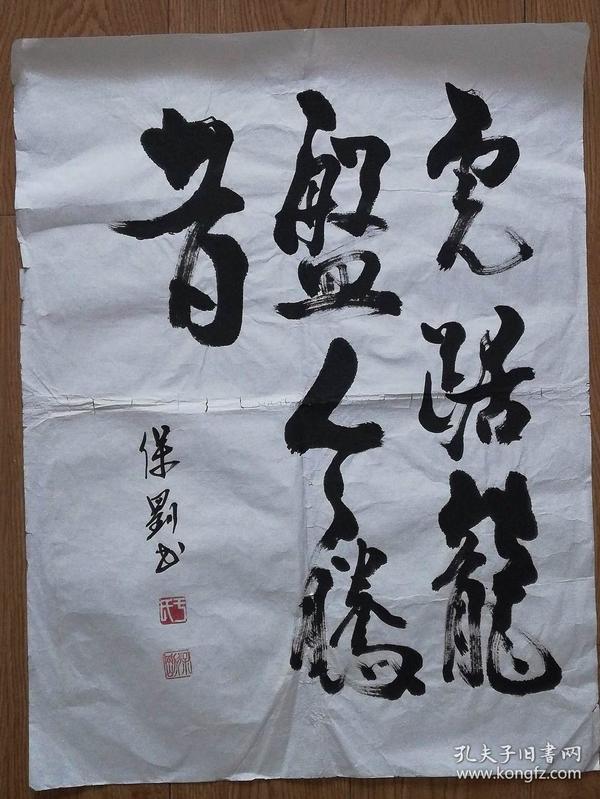 虎踞龍
盤今勝
昔
保剛书
孔夫子旧書网
www.kongfz.com